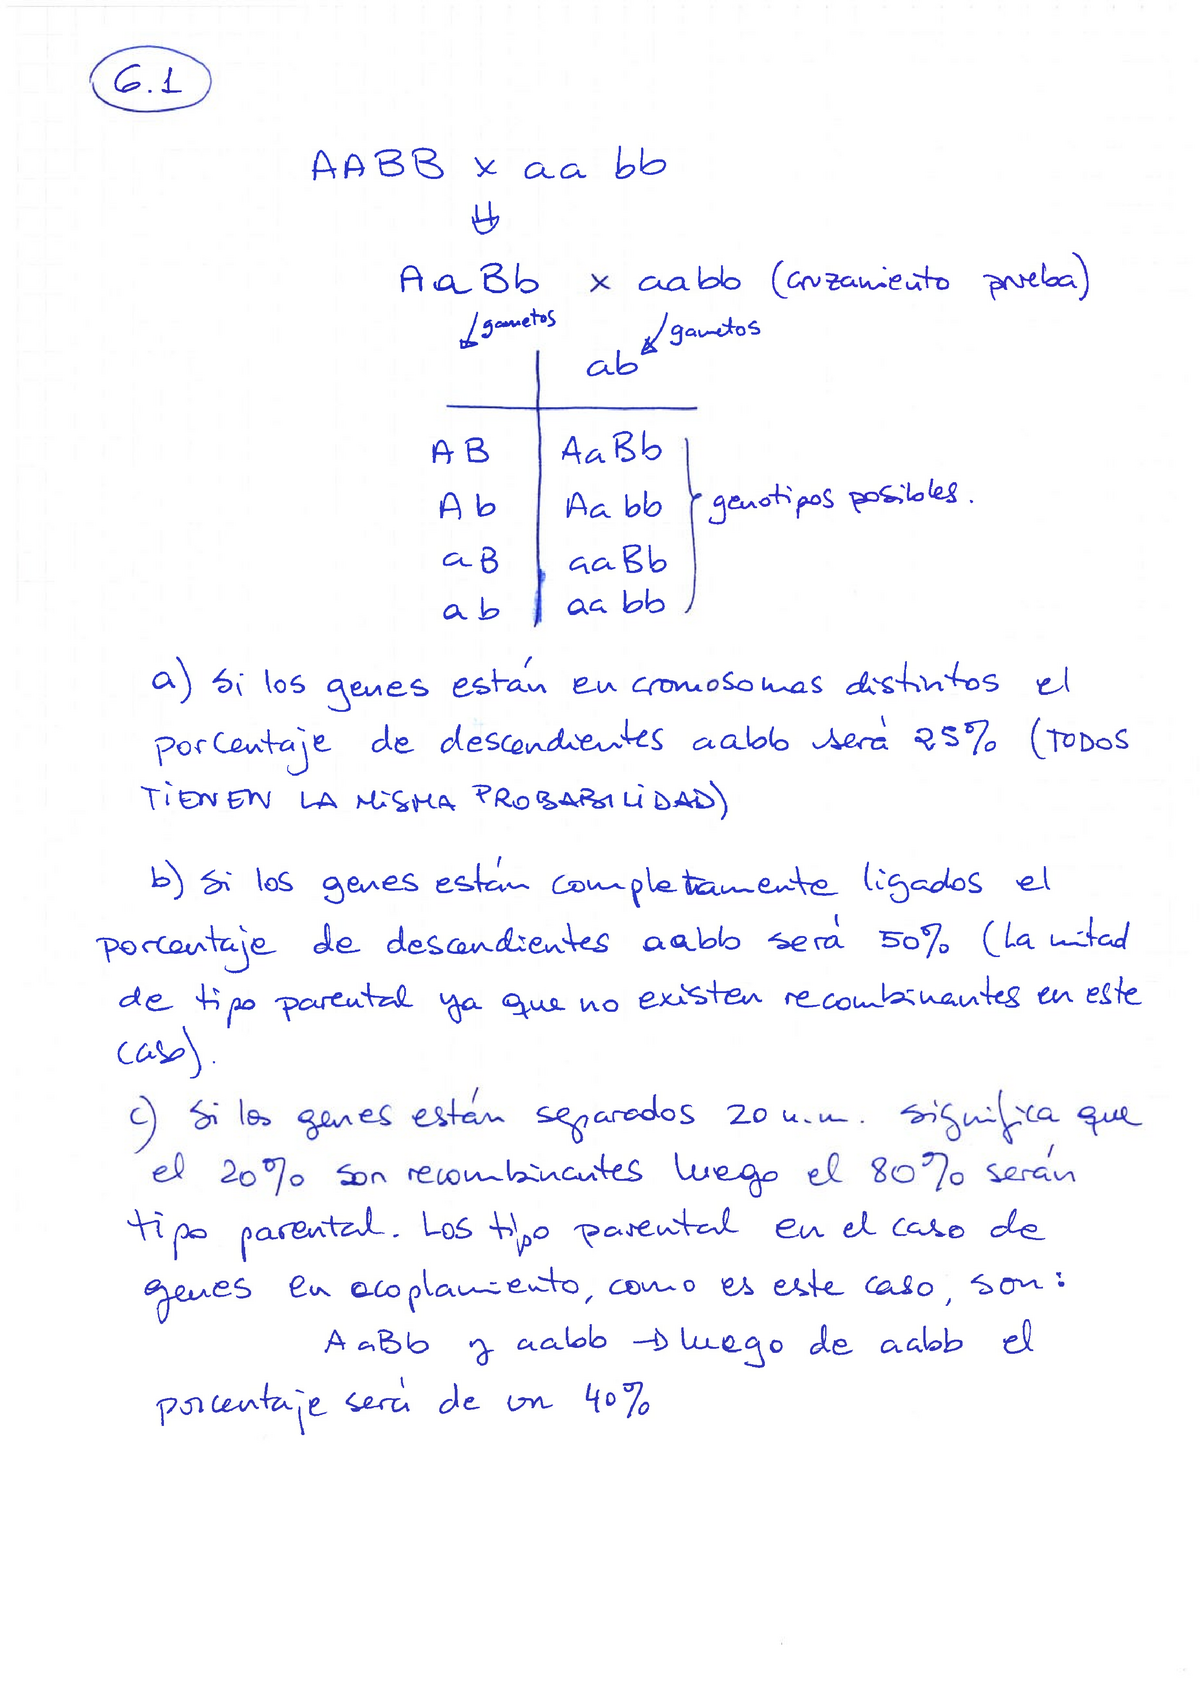 6.1
AABB x aa bb
AaBb x aabb (cruzamiento prueba)
gametos
gametos
ab
AB AaBb
Ab Aa bb
genotipos posibles.
aB aaBb
ab aa bb
a) Si los genes están en cromosomas distintos el
porcentaje de descendientes aabb será 25% (TODOS
TIENEN LA MISMA PROBABILIDAD)
b) Si los genes están completamente ligados el
porcentaje de descendientes aabb será 50% (La mitad
de tipo parental ya que no existen recombinantes en este
caso).
c) Si los genes están separados 20 u.m. significa que
el 20% son recombinantes luego el 80% serán
tipo parental. Los tipo parental en el caso de
genes en acoplamiento, como es este caso, son:
AaBb y aabb → luego de aabb el
porcentaje será de un 40%